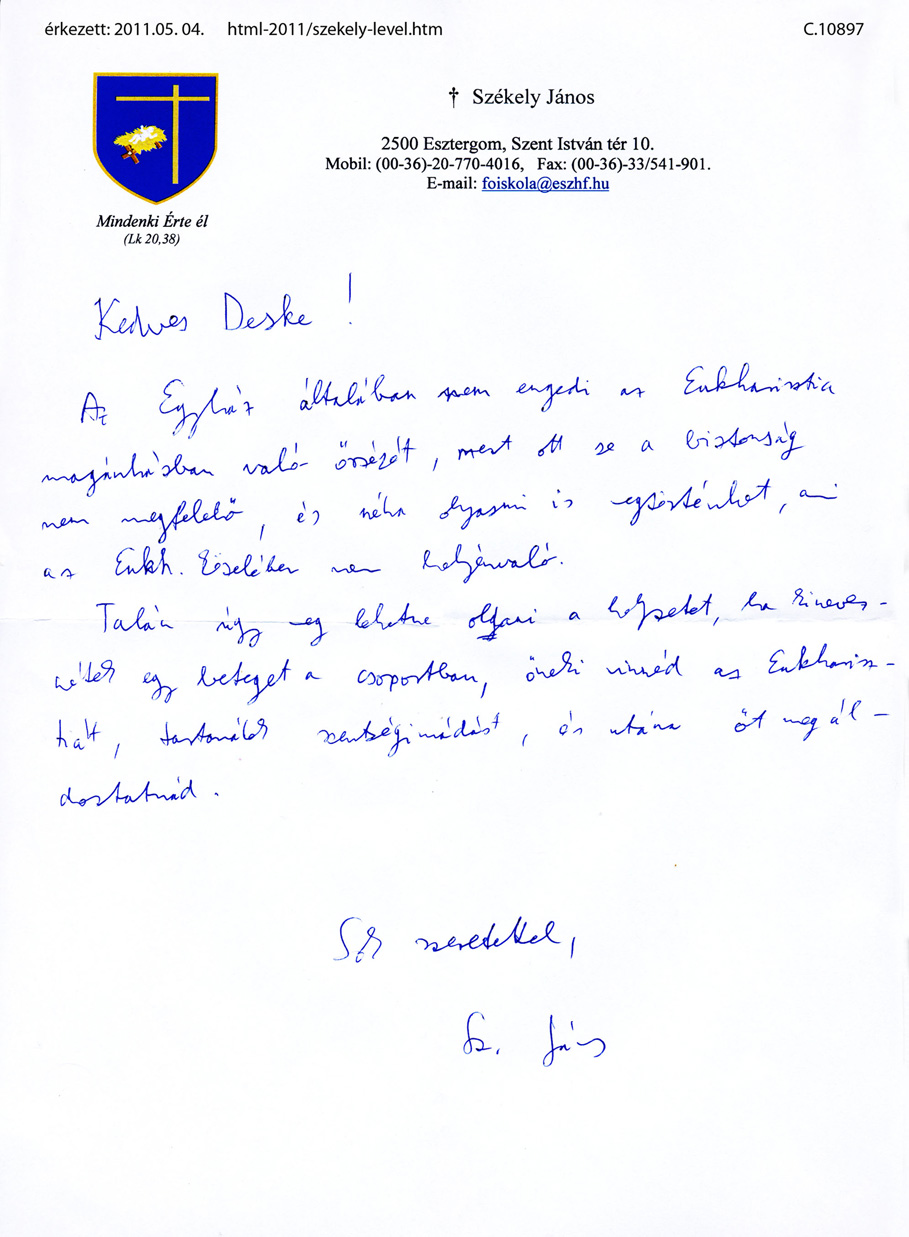 érkezett: 2011.05. 04. html-2011/szekely-level.htm C.10897
† Székely János
2500 Esztergom, Szent István tér 10.
Mobil: (00-36)-20-770-4016, Fax: (00-36)-33/541-901.
E-mail: foiskola@eszhf.hu
Mindenki Érte él
(Lk 20,38)
Kedves Deske!
Az Egyház általában nem engedi az Eukharisztia
magánházban való őrzését, mert ott se a biztonság
nem megfelelő, és néha olyasmi is történhet, ami
az Eukh. közelében nem helyénvaló.
Talán úgy meg lehetne oldani a helyzetet, ha kinevez-
nétek egy beteget a csoportban, őneki vinnéd az Eukharisz-
tiát, tartanátok szentségimádást, és utána őt megál-
doztatnád.
szeretettel,
Sz. János